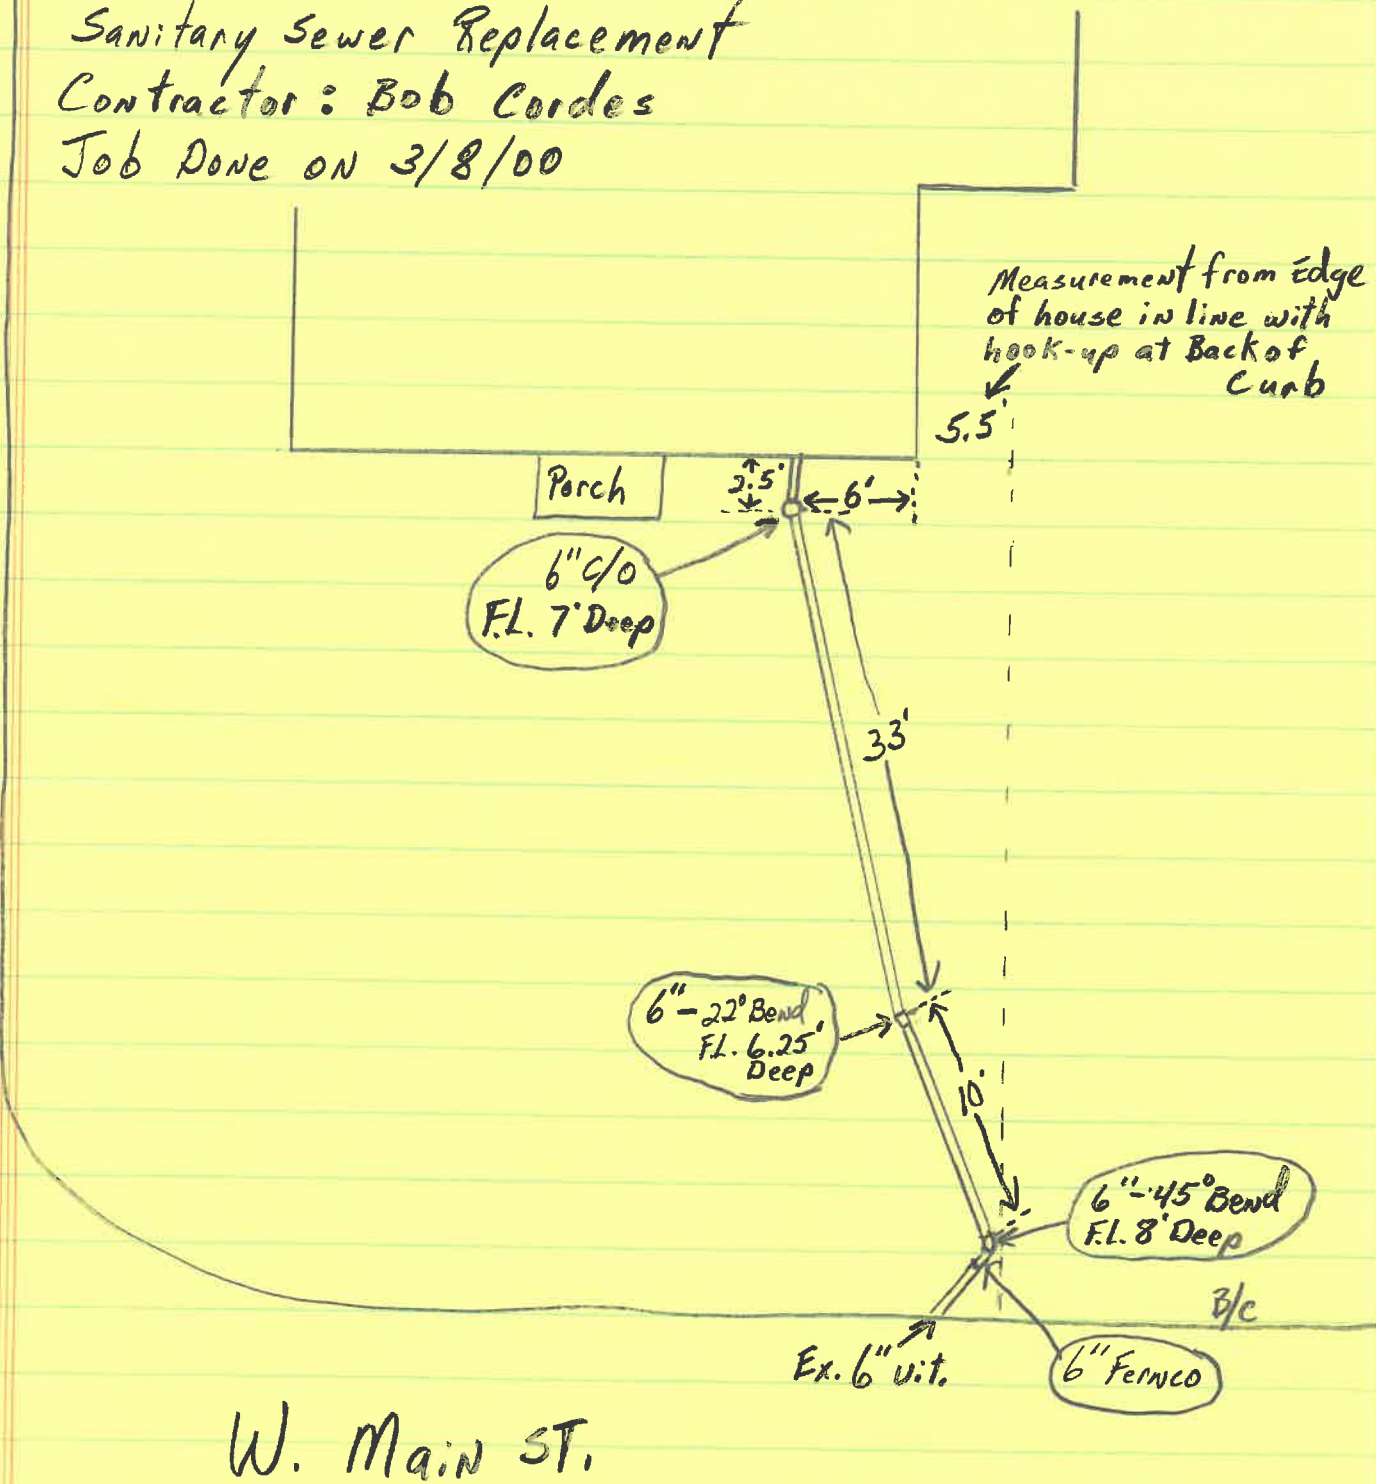 Sanitary Sewer Replacement
Contractor: Bob Cordes
Job Done on 3/8/00
Measurement from Edge
of house in line with
hook-up at Back of
Curb
5.5'
Porch
2.5'
6'
6" C/O
F.L. 7' Deep
33'
6"-22° Bend
F.L. 6.25'
Deep
10'
6"-45° Bend
F.L. 8' Deep
B/C
Ex. 6" vit.
6" Fernco
W. Main ST.